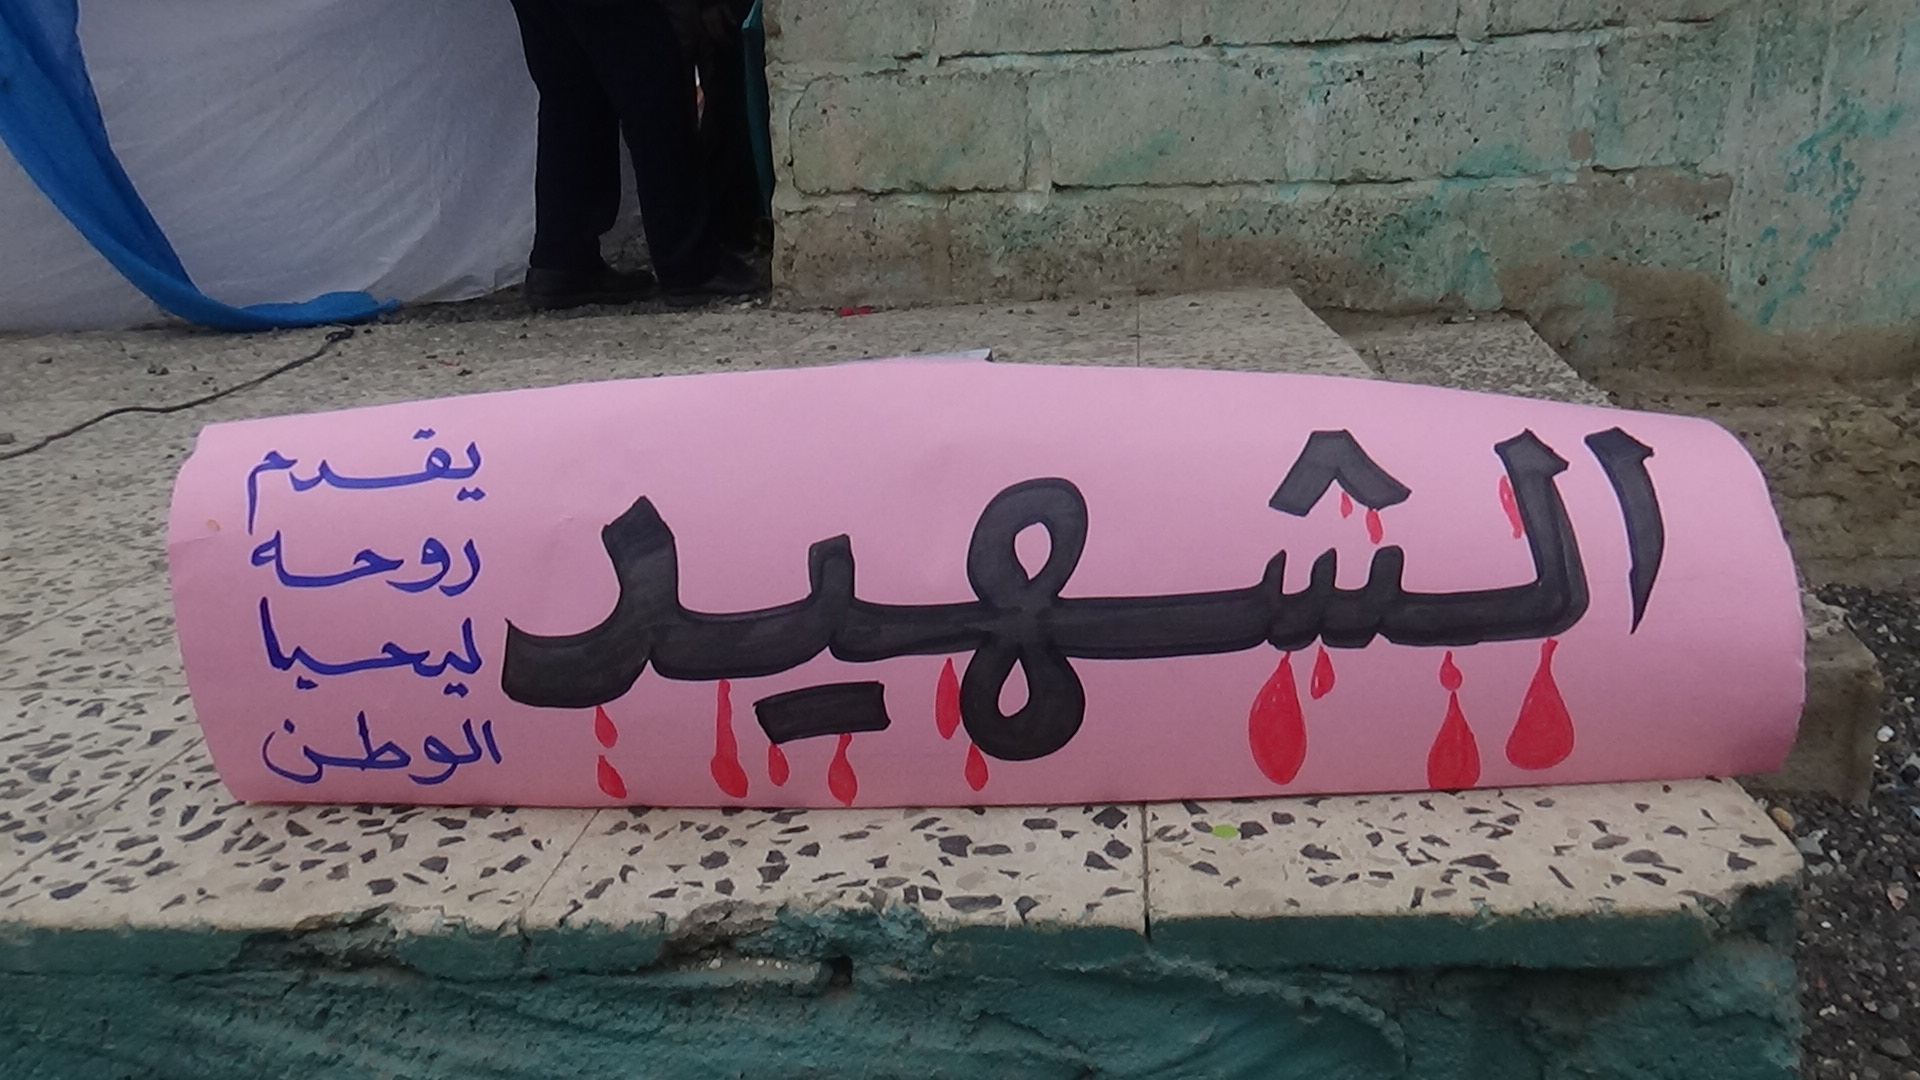 الشهيد
يقدم
روحه
ليحيا
الوطن